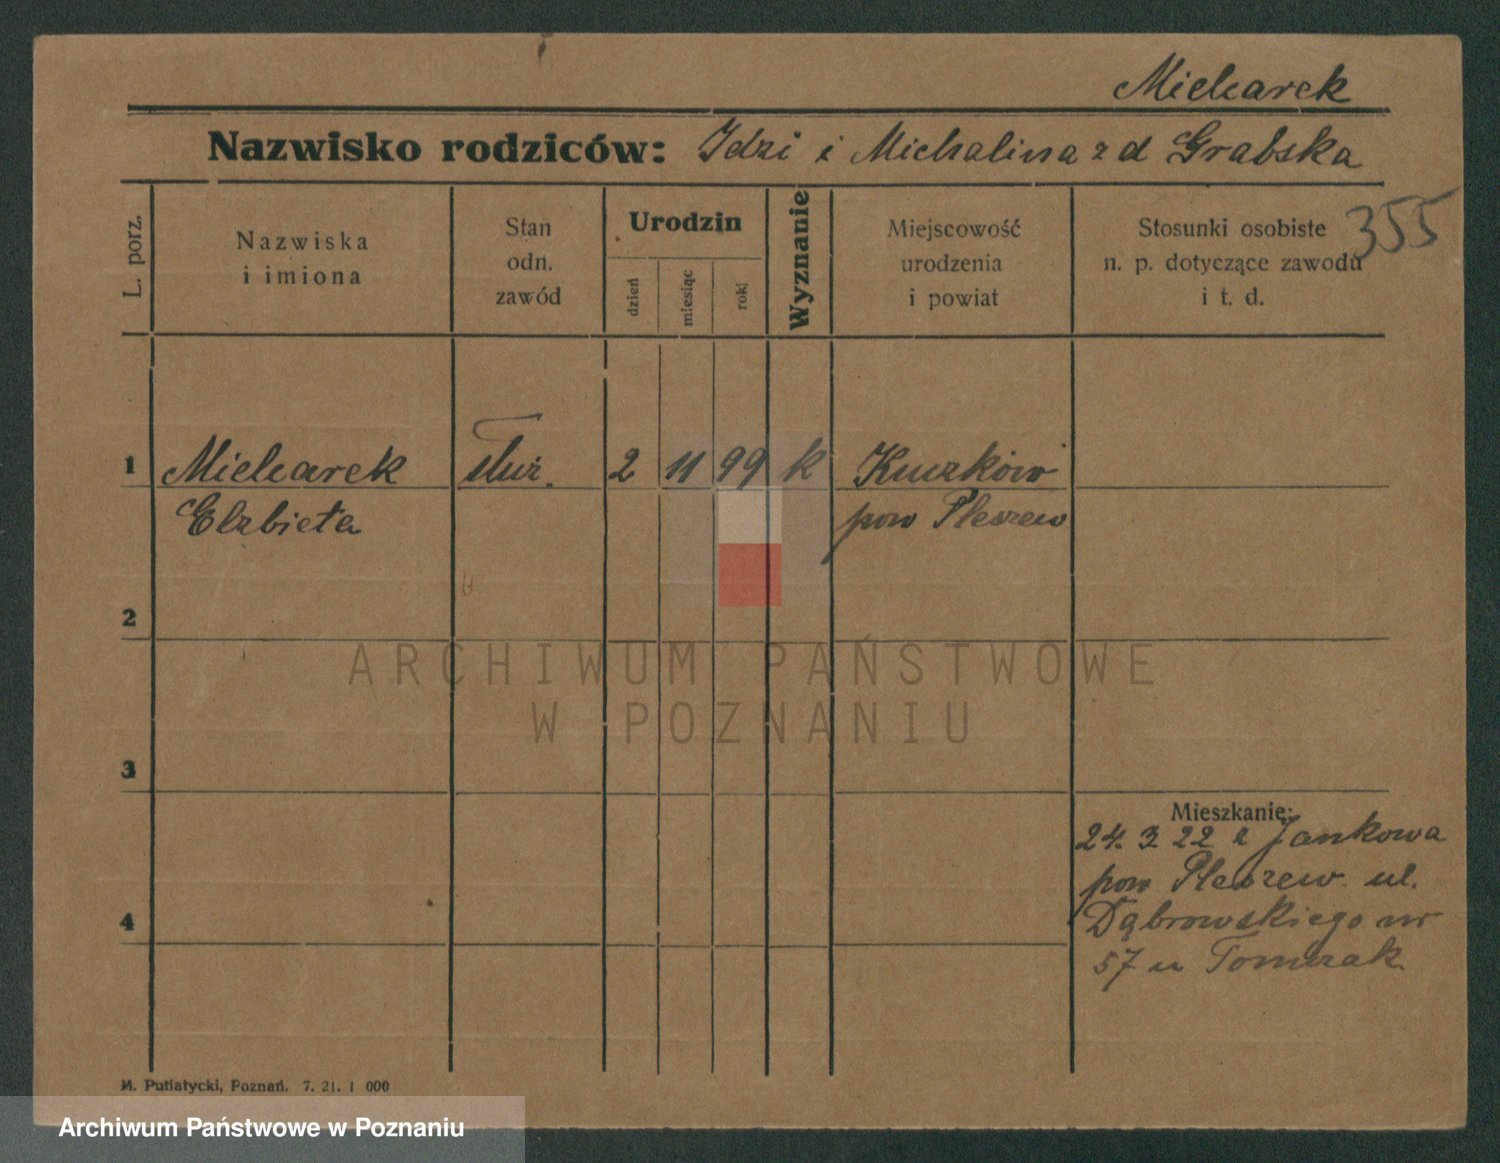 Mielcarek
Nazwisko rodziców: Idzi i Michalina z d Grabska
355
L. porz.
Nazwiska
i imiona
Stan
odn.
zawód
Urodzin
dzień
miesiąc
rok
Wyznanie
Miejscowość
urodzenia
i powiat
Stosunki osobiste
n. p. dotyczące zawodu
i t. d.
1 Mielcarek służ. 2 11 99 k Kuczków
Elzbieta pow Pleszew
2
ARCHIWUM PAŃSTWOWE
W POZNANIU
3
Mieszkanie:
24. 3. 22 z Jankowa
pow Pleszew. ul.
4
Dąbrowskiego nr
57 u Tomczak
M. Putiatycki, Poznań. 7. 21. 1 000
Archiwum Państwowe w Poznaniu